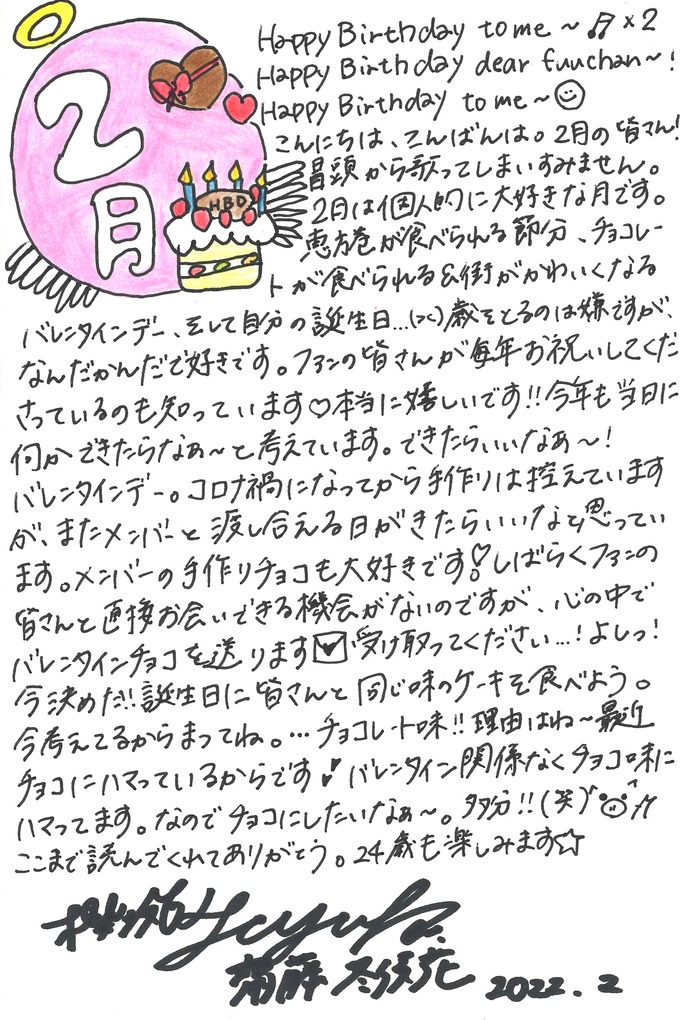 2月
HBD
Happy Birthday to me～♬×2
Happy Birthday dear fuuchan～!
Happy Birthday to me～☺
こんにちは、こんばんは。2月の皆さん!
冒頭から歌ってしまいすみません。
2月は個人的に大好きな月です。
恵方巻が食べられる節分、チョコレー
トが食べられる&街がかわいくなる
バレンタインデー、そして自分の誕生日…歳をとるのは嫌ですが、
なんだかんだで好きです。ファンの皆さんが毎年お祝いしてくだ
さっているのも知っています♡本当に嬉しいです!!今年も当日に
何かできたらなぁ～と考えています。できたらいいなぁ～!
バレンタインデー。コロナ禍になってから手作りは控えています
が、またメンバーと渡し合える日がきたらいいなと思ってい
ます。メンバーの手作りチョコも大好きです♡しばらくファンの
皆さんと直接お会いできる機会がないのですが、心の中で
バレンタインチョコを送ります受け取ってください…!よしっ!
今決めた!!誕生日に皆さんと同じ味のケーキを食べよう。
今考えてるからまってね。…チョコレート味!!理由はね～最近
チョコにハマっているからです♪バレンタイン関係なくチョコ味に
ハマってます。なのでチョコにしたいなぁ～。多分!!(笑)
ここまで読んでくれてありがとう。24歳も楽しみます☆
齋藤冬優花 2022.2